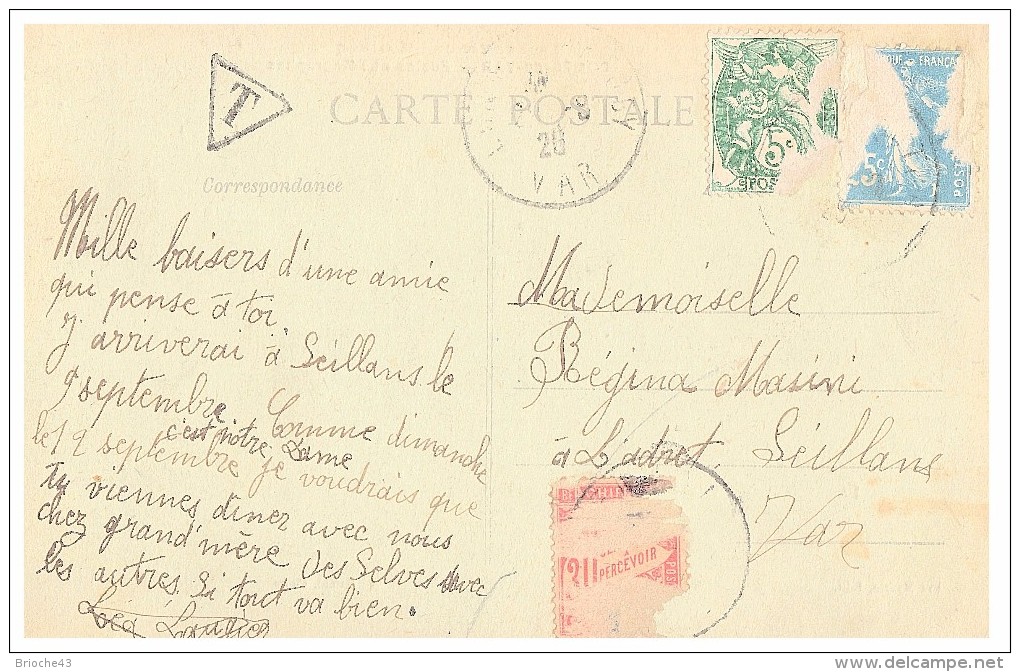 T
CARTE POSTALE
8
20
VAR
5c
POS
FRANÇA
5c
POS
Correspondance
Mille baisers d'une amie
qui pense à toi.
J'arriverai à Seillans le
9 septembre. Comme dimanche
c'est notre Dame
le 12 septembre je voudrais que
tu viennes diner avec nous
chez grand'mère des Selves avec
les autres. Si tout va bien.
Mademoiselle
Régina Masini
à L'adret. Seillans
Var
PERCEVOIR
Brioche43
delcampe.net